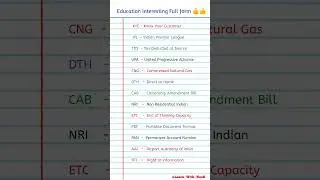 Education Interesting Full Form 👍👍
KYC - Know Your Customer
IPL - Indian Premier League
TDS - Tax Deducted at Source
UPA - United Progressive Alliance
CNG - Compressed Natural Gas
DTH - Direct to Home
CAB - Citizenship Amendment Bill
NRI - Non Residential Indian
ETC - End of Thinking Capacity
PDF - Portable Document Format
PAN - Permanent Account Number
AAI - Airport Authority of India
RTI - Right to Information
With
CNG
ral Gas
DTH
CAB
ndment Bill
NRI
Indian
ETC
Capacity